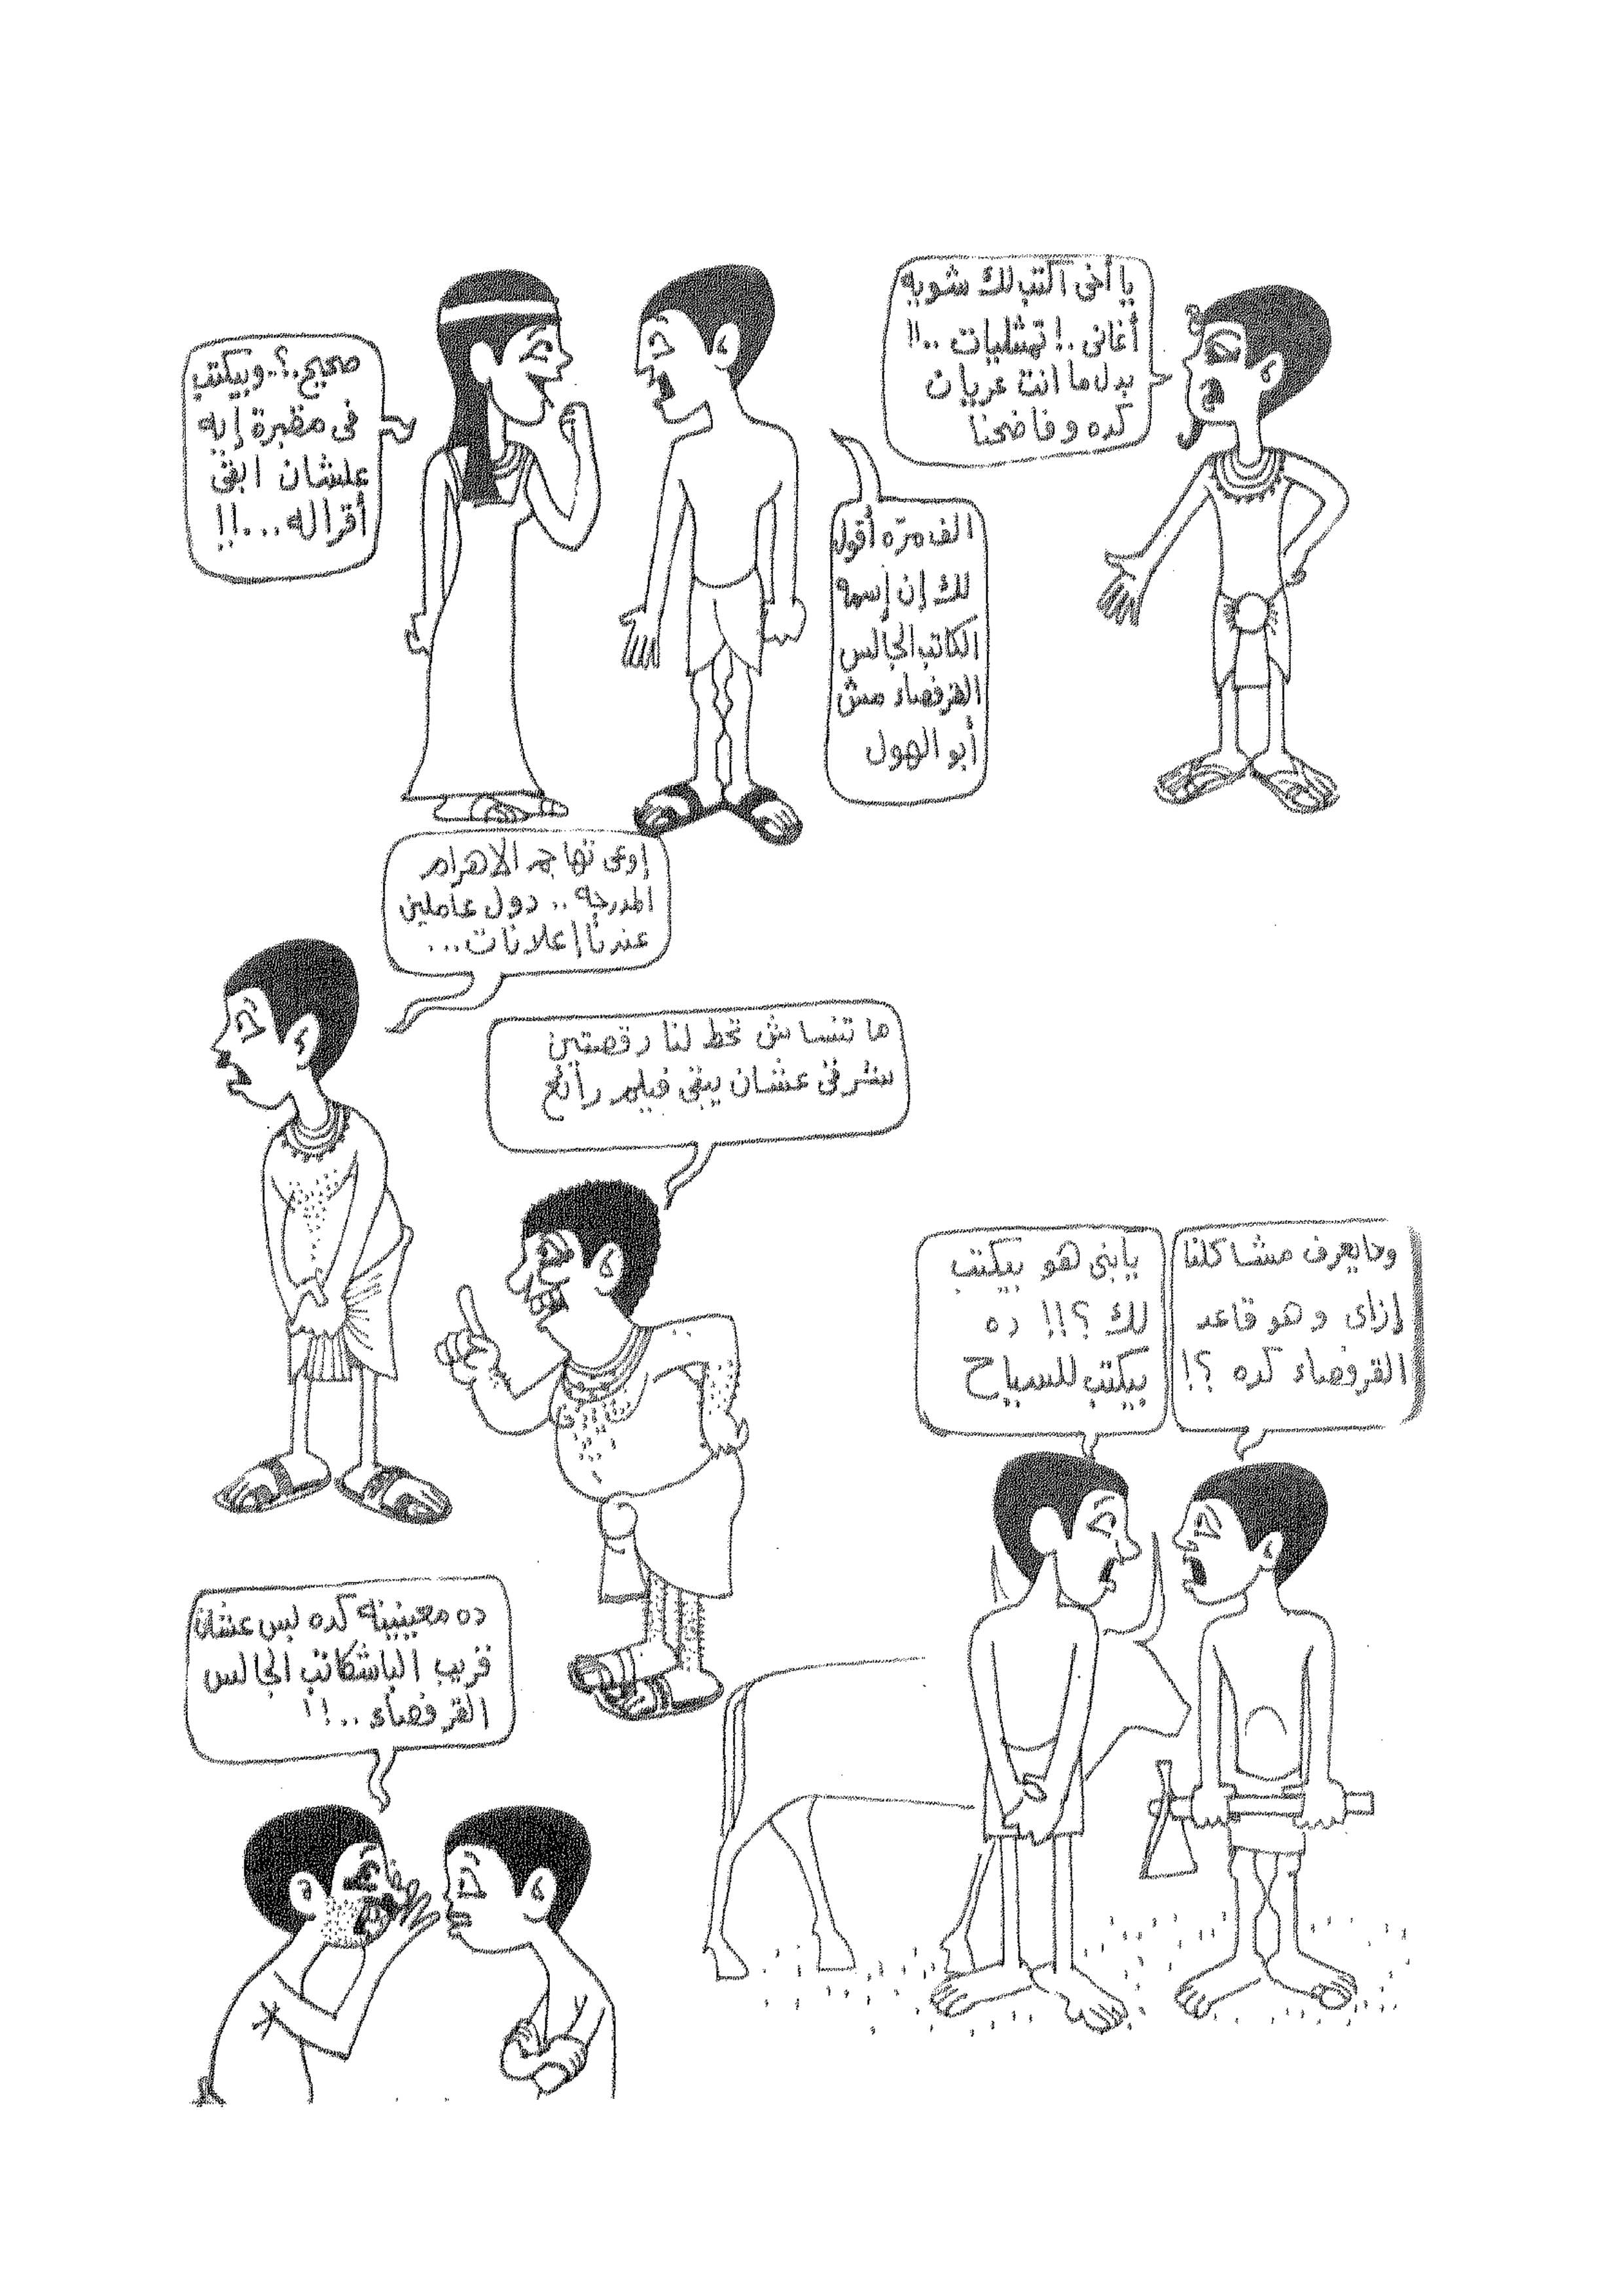 يا أخى اكتب لك شويه
أغانى .! تمثليات ..!!
بدل ما انت عريان
كده وفاضحنا
الف مرّه أقول
لك إن إسمه
الكاتب الجالس
القرفصاء مش
أبو الهول
صحيح.؟..وبيكتب
فى مقبرة إيه
علشان ابقى
أقراله...!!
إوعى تهاجم الاهرام
المدرجه .. دول عاملين
عندنا إعلانات...
ما تنساش تحط لنا رقصتين
شرقى عشان يبقى فيلم رائع
وحايعرف مشاكلنا
إزاى وهو قاعد
القرفصاء كده ؟!
يابنى هو بيكتب
لك ؟!! ده
بيكتب للسياح
ده معينينه كده بس عشان
قريب الباشكاتب الجالس
القرفصاء ..!!